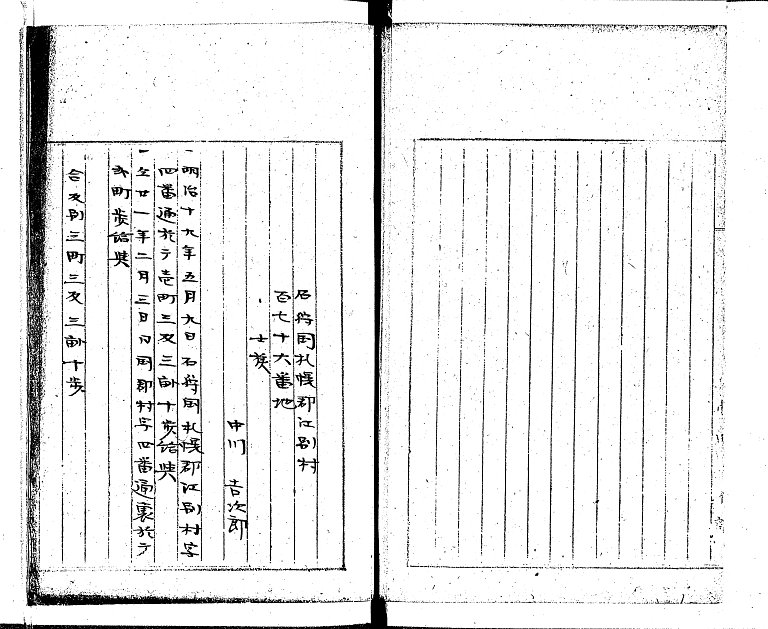 石狩国札幌郡江別村
百七十六番地
士族
中川 吉次郎
一明治十九年五月九日石狩国札幌郡江別村字
四番通於テ壱町三反三畝十歩給与
一仝廿一年二月三日同国郡村字四番通裏於テ
弐町歩給与
合反別三町三反三畝十歩